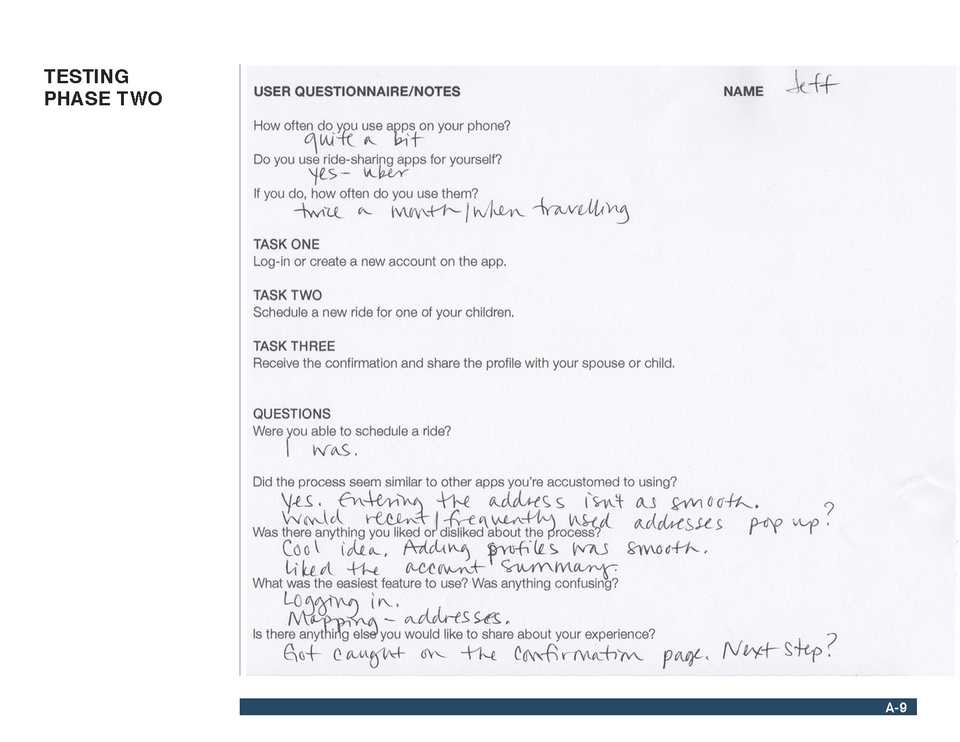 TESTING
PHASE TWO
USER QUESTIONNAIRE/NOTES
NAME Jeff
How often do you use apps on your phone?
quite a bit
Do you use ride-sharing apps for yourself?
yes - uber
If you do, how often do you use them?
twice a month/when travelling
TASK ONE
Log-in or create a new account on the app.
TASK TWO
Schedule a new ride for one of your children.
TASK THREE
Receive the confirmation and share the profile with your spouse or child.
QUESTIONS
Were you able to schedule a ride?
I was.
Did the process seem similar to other apps you're accustomed to using?
Yes. Entering the address isn't as smooth.
Would recent/frequently used addresses pop up?
Was there anything you liked or disliked about the process?
Cool idea. Adding profiles was smooth.
liked the account summary.
What was the easiest feature to use? Was anything confusing?
Logging in.
Mapping - addresses.
Is there anything else you would like to share about your experience?
Got caught on the confirmation page. Next step?
A-9